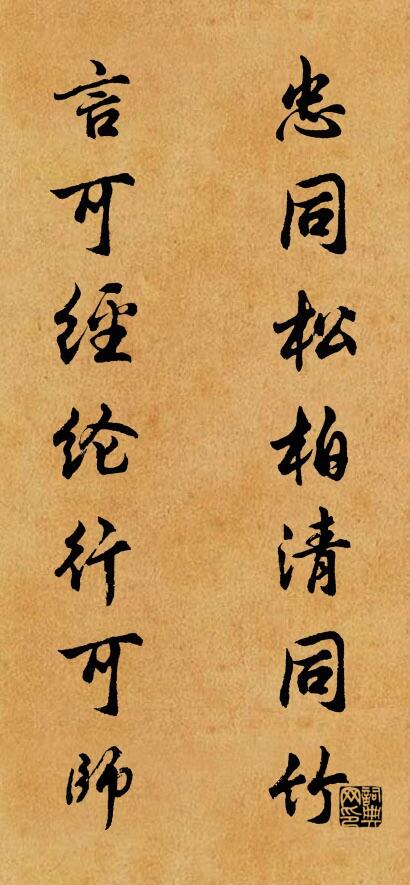 忠同松柏清同竹
言可經纶行可師
詞典网印